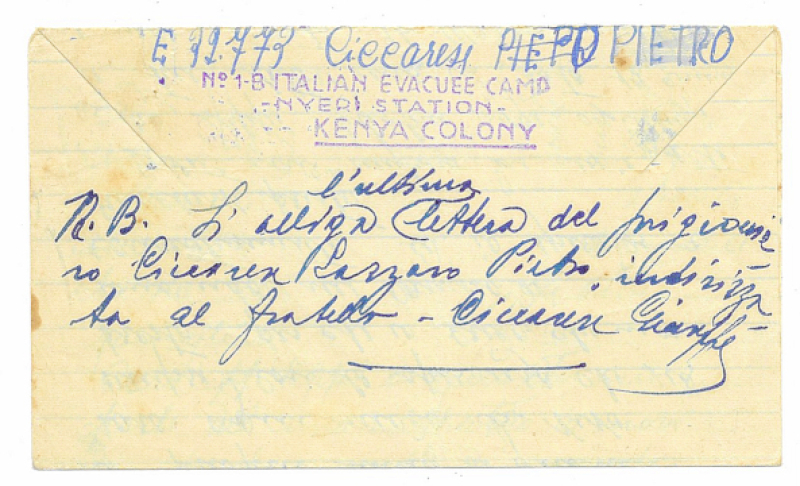 E 99.773 Ciccarese PIEPO PIETRO
Nº 1-B ITALIAN EVACUEE CAMP
-NYERI STATION-
KENYA COLONY
l'ultima
N. B. Si alliga lettera del prigionie-
ro Ciccarese Lazzaro Pietro, indirizza-
ta al fratello - Ciccarese